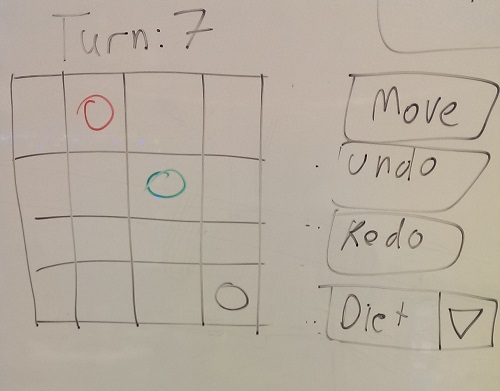 Turn: 7
Move
Undo
Redo
Diet